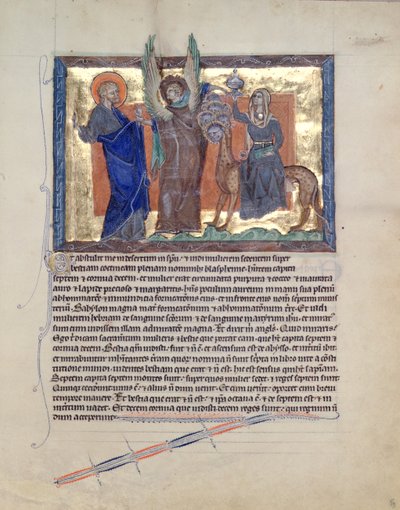 Et abstulit me in desertum in spu. & vidi mulierem sedentem super
bestiam coccineam plenam nominibus blasphemie. hntem capita
septem & cornua decem. et mulier erat circumdata purpura & cocco & inaurata
auro & lapide precioso & margaritis. hns poculum aureum in manu sua plenum
abhominatione & inmundicia fornicationis eius. et in fronte eius nom scriptum miste
rium. Babylon magna mater fornicationum & abhominationum tre. Et vidi
mulierem hebriam de sanguine scorum. & de sanguine martyrum ihu. et miratus
sum cum vidissem illam admiratione magna. Et dixit m angls. Quid miraris.
Ego dicam sacramentum mulieris & bestie que portat eam. que ht capita septem &
cornua decem. Bestia quam vidisti. fuit & n est & ascensura est de abysso. et interitum
ibit. mirabuntur inhitantes terram quorum nomina n sunt scpta in libro vite a consti
tutione mundi. videntes bestiam que erat & n est. hic est sensus qui ht sapiam.
Septem capita septem montes sunt. super quos mulier sedet. & reges septem sunt.
Quinque ceciderunt unus est. & alius nondum venit. Et cum venerit. oportet eum brevi
tempore manere. Et bestia que erat & n est. & ipa octava est. & de septem est & in
interitum vadet. Et decem cornua que vidisti decem reges sunt. qui regnum n
dum acceperunt.